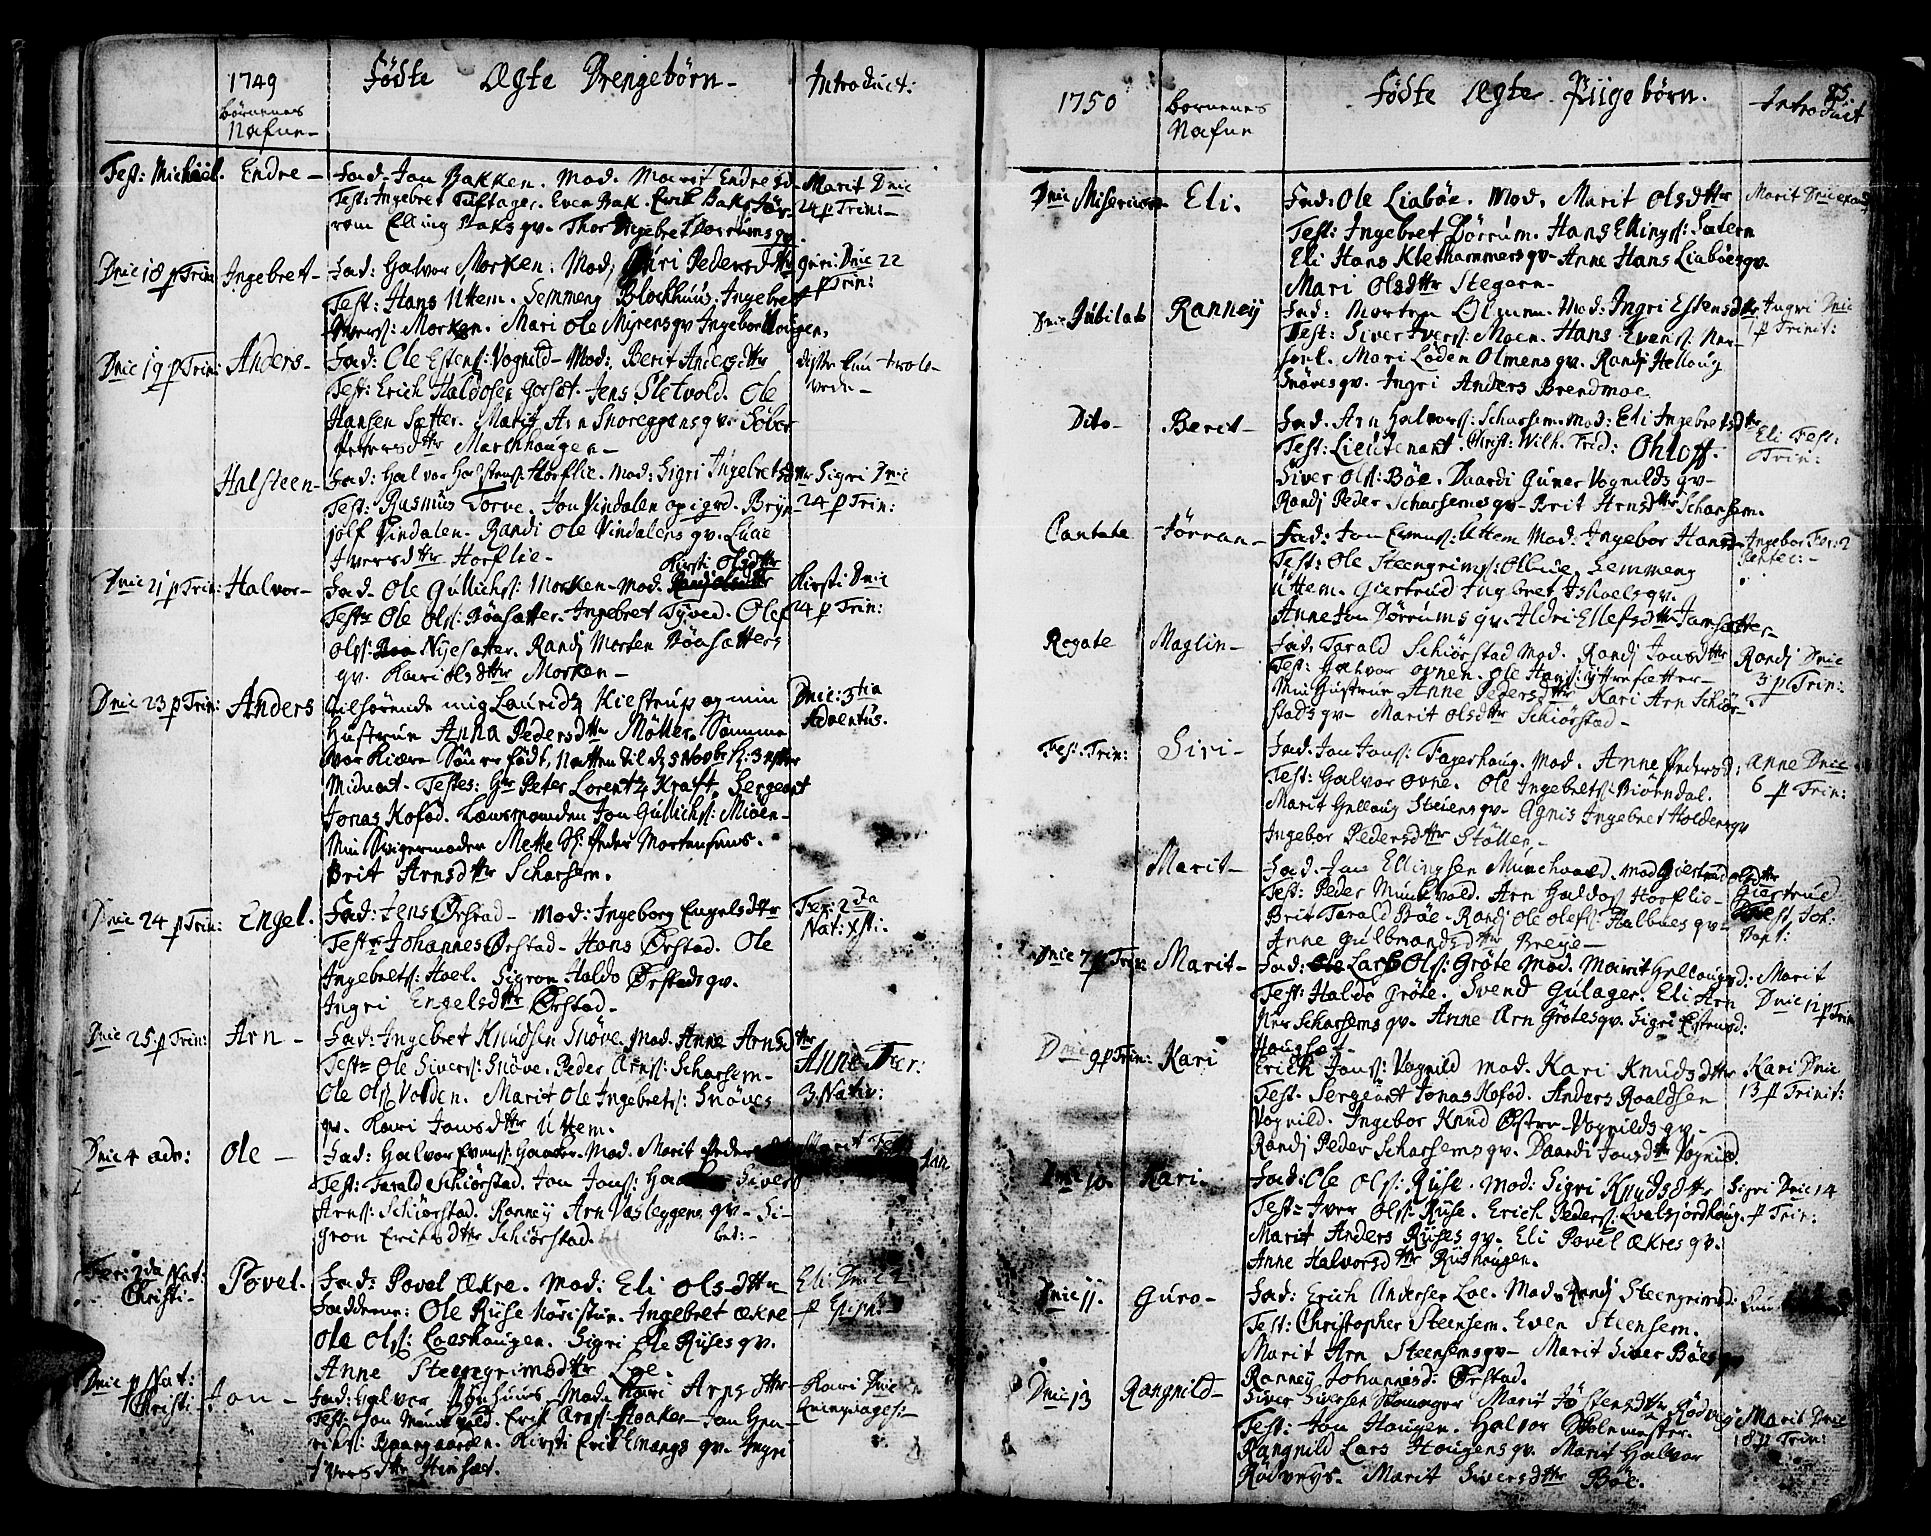 1749
Börnenes
Nafne
Födte Ægte Drengebörn
Introduct:
Fest: Michael. Endre
Fad: Jon Bakken. Mod. Marit Endresd
Test: Ingebret Tuftager. Even Bak. Erik Bak. Jör-
rom Elling Baks qv. Thor Ingebret Dorrums qv.
Marit Dnic
24 p Trin:
Dnic 18 p Trin Ingebret
Fad: Halvor Morken. Mod, Guri Pedersdttr
Test: Hans Uttem. Semmeng Blockhuus. Ingebret
Iverss: Morken. Mari Ole Myrens qv Ingebor Hougen.
guri: Dnic 22
p Trin:
Dnic 19 p Trin: Anders
Fad: Ole Estens: Vognild. Mod: Berit Andersdttr
Test: Erich Haldosen Gorset. Jens Sletvold. Ole
Hansen Sæther. Marit Arn Snoreggens qv. Sober
Petersdttr Marchhaugen
Halsteen
Fad: Halvor Halstens: Horflie. Mod: Sigri Ingebretsdttr
Test: Rasmus Torve. Jon Vindalen Bryn-
jolf Vindalen. Randi Ole Vindalens qv. Lucie
Iversdttr Horflie
Sigri Dnic
24 p Trin:
Dnic 21 p Trin: Halvor
Kirsti Olsdttr
Fad. Ole Gullichs: Morken. Mod.
Test: Ole Ols: Bönsætter. Ingebret Tyved. Olef
Ols: Nysætter. Randj Morten Bönsætters
qv. Kari Olsdttr Morken
Kirsti: Dnic
24 p Trin:
Dnic 23 p Trin: Anders
tilhörende mig Lauridz Kiestrup og min
Hustrue Anna Pedersdttr Möller. Samme
Vor Kiære Sön er födt, Natten til d. 5 Novbr Kl: 3 efter
Midnat. Testes: Hr Peter Lorentz Kraft. Sergeant
Jonas Kofod. Lænsmanden Jon Gullichs: Mioen
Min Svigermoder Mette Sl: Peder Mortensens.
Brit Arnsdttr Scharsem.
Dnic: 3tia
Adventus.
Dnic 24 p Trin: Engel.
Fad: Jens Örstad. Mod: Ingeborg Engelsdttr
Test: Johannes Örstad. Hans Örstad. Ole
Ingebrets: Hoel. Sigron Haldo Örstads qv.
Ingri Engelsdttr Örstad.
Fer: 2da
Nat: Xsti:
Dnic 25 p Trin: Arn
Fad: Ingebret Knudsen Snöve. Mod: Anne Arnsdttr
Test: Ole Sivers: Snöve. Peder Arns: Scharsem
Ole Ols: Volden. Marit Ole Ingebrets: Snöves
qv. Kari Jonsdttr Uttem.
Anne Fer:
3 Nativ:
Dnic 4 adv: Ole
Fad: Halvor Mod. Marit
Test: Tarald Schiörstad. Jon Jons: Siver
Arns: Schiörstad. Ranney Arn Væsleggens qv. Si-
gron Eriksdttr Schiörstad.
Marit Fest
Fer: 2da Nat:
Christi Povel.
Fad: Povel Ækre. Mod: Eli Olsdttr
Fadderne: Ole Ruse Noristun. Ingebret Ækre
Ole Ols: Loeshaugen. Sigri Ole Ruses qv.
Anne Steengrimsdttr Loe.
Eli Dnic 2
p Epiph:
Dnic p Nat:
Christi Jon
Fad: Halvor Mod. Kari Arnsdttr
Test: Jon Munkvold. Erik Arns: Hoaker. Jon Hen-
richs: Kirsti Erik qv. Ingri
Iversdttr
Kari Dnic
Qvinqvages:
1750
Börnenes
Nafne
Födte Ægte Piigebörn.
Introduct
85.
Dnic Misericor Eli.
Fad: Ole Liaböe. Mod. Marit Olsdttr
Test: Ingebret Dörrum. Hans Ellings: Sætern
Eli Hans Klethammers qv. Anne Hans Liaböes qv.
Mari Olsdttr Stegern
Marit Dnic exaud
Dnic Jubilate Ranney
Fad: Morten Olmen. Mod: Ingri Estensdttr
Test: Siver Ivers: Moen. Hans Evens: Nor-
Mari Loden Olmens qv. Randj Hellaug
Snöves qv. Ingri Anders Brendmoe
Ingri Dnic
1 p Trinit:
Dito Berit
Fad. Arn Halvors: Scharsem. Mod: Eli Ingebretsdttr
Test: Lieutenant. Christ: Wilh. Frid: Ohloff.
Siver Ols: Böe. Daardi Guner Vognilds qv
Randj Peder Scharsems qv. Brit Arnsdttr Scharsem.
Eli Fest:
Trin:
Cantate Jörran
Fad: Jon Uttem Mod: Ingebor Hansd
Test: Ole Steengrims: Semmeng
Uttem. Giertrud Ingebret qv.
Anne Jon Dörrums qv. Aldri Ellefsdttr
Ingebor Fer: 2
Pentec:
Rogate Maglin
Fad. Tarald Schiörstad Mod. Randj Jonsdttr
Test: Halvor Ovnen. Ole Hans: Yttresætter
Min Hustrue Anne Pedersdttr Kari Arn Schiör-
stads qv. Marit Olsdttr Schiörstad
Randj Dnic
3 p Trin:
Fest: Trin: Siri
Fad. Jon Jons: Fagerhaug. Mod. Anne Pedersd:
Test: Halvor Ovne. Ole Ingebrets: Biörndal.
Marit Hellaug Steiens qv. Agnis Ingebret Holdens qv
Ingebor Pedersdttr Stöllen
Anne Dnic
6 p Trin:
Marit
Fad. Jon Ellingsen Munchvold. Mod Giertrud Olsdttr
Test: Peder Munkvold. Arn Haldos: Horflie
Brit Tarald Böe. Randj Ole Olefs: Halbues qv
Anne Gulbrandsdttr Breye
Giertrud
Fest. Joh:
Bapt:
Dnic 7 p Trin: Marit
Fad: Lars Ols: Gröte Mod. Marit Hellaugsd.
Test: Haldo Gröte. Svend Gulager. Eli Arn
Scharsems qv. Anne Arn Grötes qv. Sigri
Haugset
Marit
Dnic 12 p Trin
Dnic 9 p Trin: Kari
Erich Jons: Vognild Mod. Kari Knudsdttr
Test. Sergeant Jonas Kofod. Anders Roaldsen
Vognild. Ingebor Knud Östre Vognilds qv
Randj Peder Scharsems qv. Daardi Jonsdttr Vognild.
Kari Dnic
13 p Trinit:
Dnic 10. Kari
Fad: Ole Ols: Ruse. Mod: Sigri Knudsdttr
Test: Iver Ols: Ruse. Erich Peders: Qvalsjordhoug.
Marit Anders Ruses qv. Eli Povel Ækres qv.
Anne Halvorsdttr Rushaugen.
Sigri Dnic 14
p Trin:
Dnic 11. Guro
Fad: Erich Andersen Loe. Mod. Randj Steengrimsd:
Test: Christopher Steensem. Even Steensem.
Marit Arn Steensems qv Marit Siver Böes qv
Ranney Johannesd: Örstad.
Dnic 13 Rangnild
Siver Siversen Marit Jöstensdttr Rödvej
Test: Jon Haugen. Halvor Skolemester.
Rangnild Lars Haugens qv. Marit Halvor
Rödveys. Marit Siversdttr Böe.
Marit Dnic
18 p Trin: